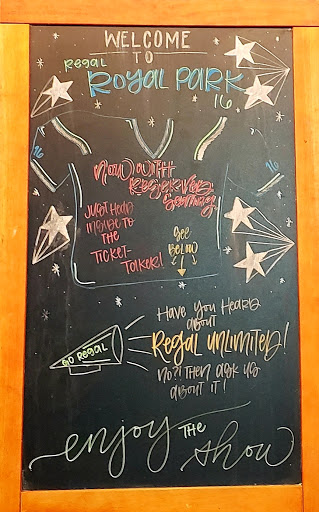 WELCOME
TO
REGAL
ROYAL PARK
16
16
16
NOW WITH
RESERVED
SEATING
JUST HEAD
INSIDE TO
THE
TICKET-
TAKER!
SEE
BELOW
HAVE YOU HEARD
about
REGAL UNLIMITED!
NO?! THEN ASK US
about IT!
GO REGAL
enjoy THE show